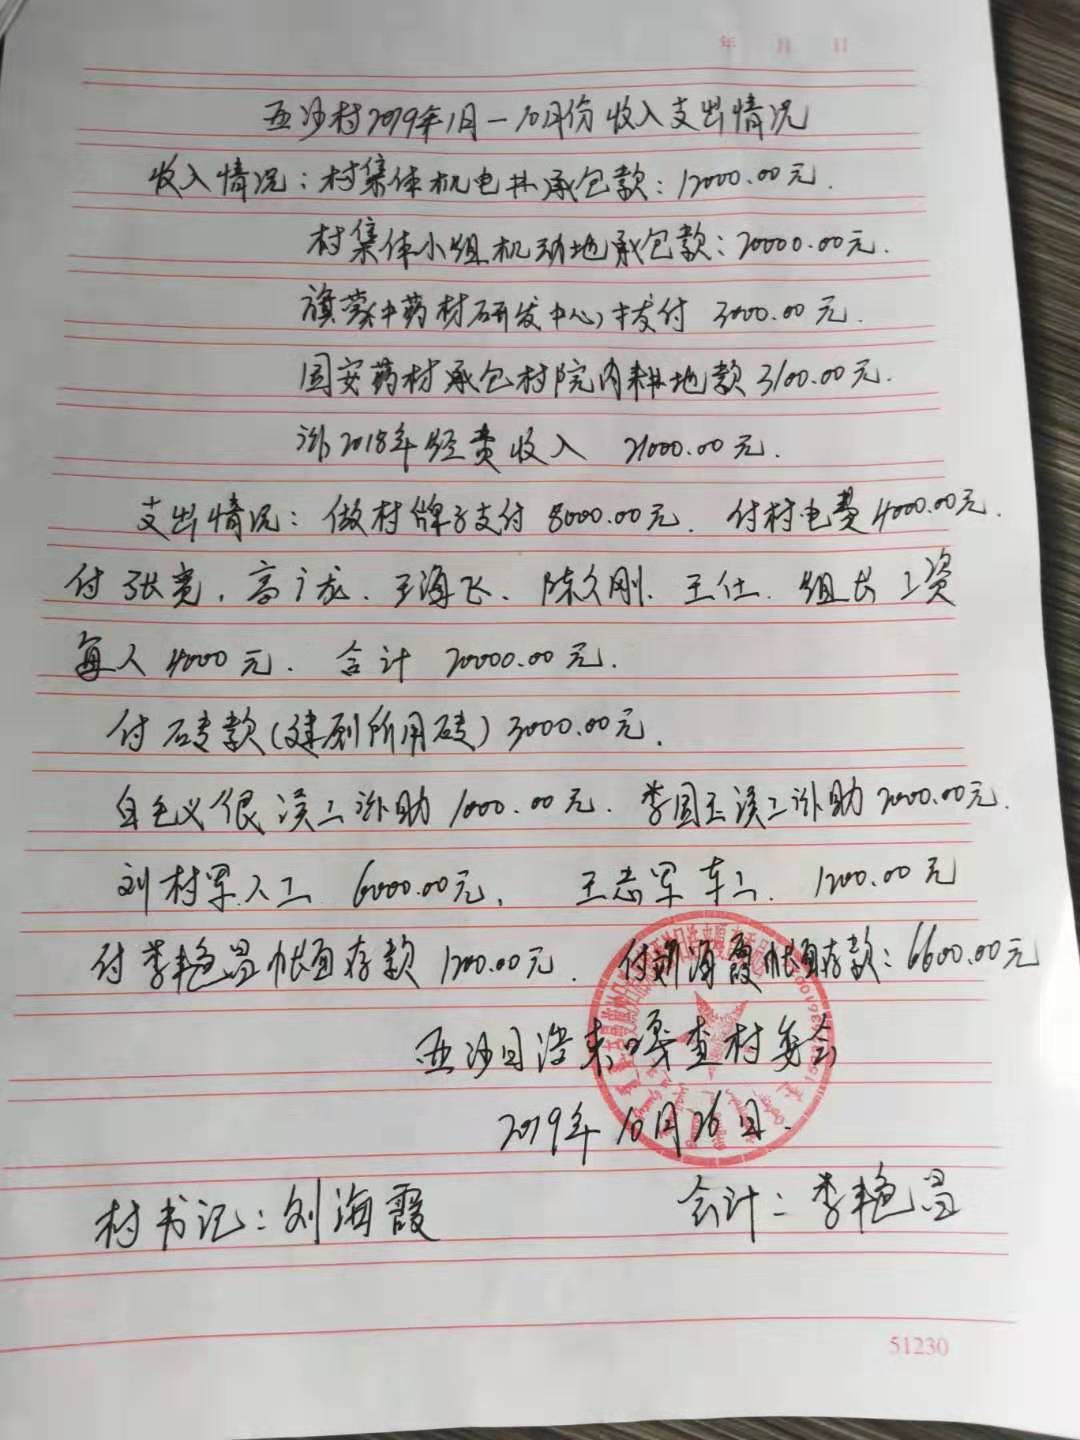 年 月 日
五沙村2019年1月-10月份收入支出情况
收入情况：村集体机电井承包款：12000.00元.
村集体小组机动地承包款：20000.00元.
旗蒙(中药材研发中心)拨付 3000.00元.
国安药材承包村院内耕地款3100.00元.
补2018年经费收入 21000.00元.
支出情况：做村牌子支付8000.00元. 付村电费4000.00元.
付张宽、高广龙、王海飞、陈久刚、王仕. 组长工资
每人4000元. 合计 20000.00元.
付砖款(建厕所用砖)3000.00元.
误工补助1000.00元. 李国玉误工补助2000.00元.
刘村军人工 6000.00元, 王志军车工 1200.00元
付李艳昌帐面存款1200.00元. 付刘海霞帐面存款：6600.00元
五沙日浩来嘎查村委会
2019年10月26日.
村书记：刘海霞 会计：李艳昌
51230